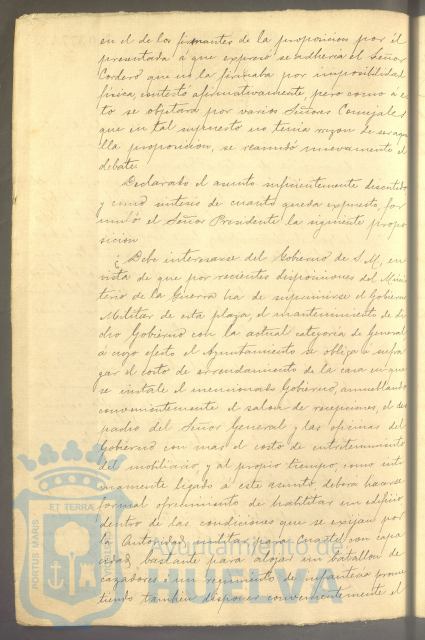 en el de los firmantes de la proposicion por él
presentada á que expresó se adheria el Señor
Cordero que no la firmaba por imposibilidad
física, contestó afirmativamente pero como á es
to se objetara por varios Señores Concejales
que en tal supuesto no tenia razon de ser aque
lla proposicion, se reanudó nuevamente el
debate.
Declarado el asunto suficientemente discutido
y como síntesis de cuanto queda expuesto, for
muló el Señor Presidente la siguiente propo
sicion
¿Debe interesarse del Gobierno de S. M., en
vista de que por recientes disposiciones del Minis
terio de la Guerra ha de suprimirse el Gobierno
Militar de esta plaza, el mantenimiento de di
cho Gobierno con la actual categoria de General
á cuyo efecto el Ayuntamiento se obliga á sufra
gar el costo de arrendamiento de la casa en que
se instale el mencionado Gobierno, amueblando
convenientemente el salon de recepciones, el des
pacho del Señor General y las oficinas del
Gobierno con mas el costo de entretenimiento
del mobiliario, y al propio tiempo, como inti
mamente ligado á este asunto deberá hacerse
formal ofrecimiento de habilitar un edificio
dentro de las condiciones que se exijan por
la Autoridad militar para Cuartel con capa
cidad bastante para alojar un batallon de
cazadores ó un regimiento de infanteria prome
tiendo tambien disponer convenientemente el
PORTUS MARIS
ET TERRÆ
Ayuntamiento de
HUELVA